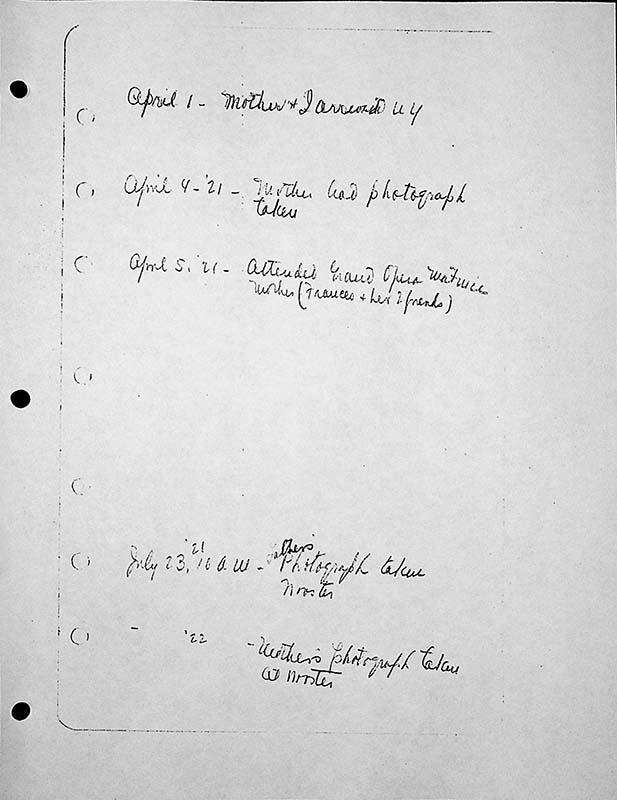 April 1 - Mother & I arrived N Y
April 4 - '21 - Mother had photograph
taken
April 5, '21 - Attended Grand Opera Matinee
Mother (Frances & her 2 friends)
July 23, '21 10 A M - Father's Photograph taken
Wooster
- '22 - Mother's photograph taken
at Wooster